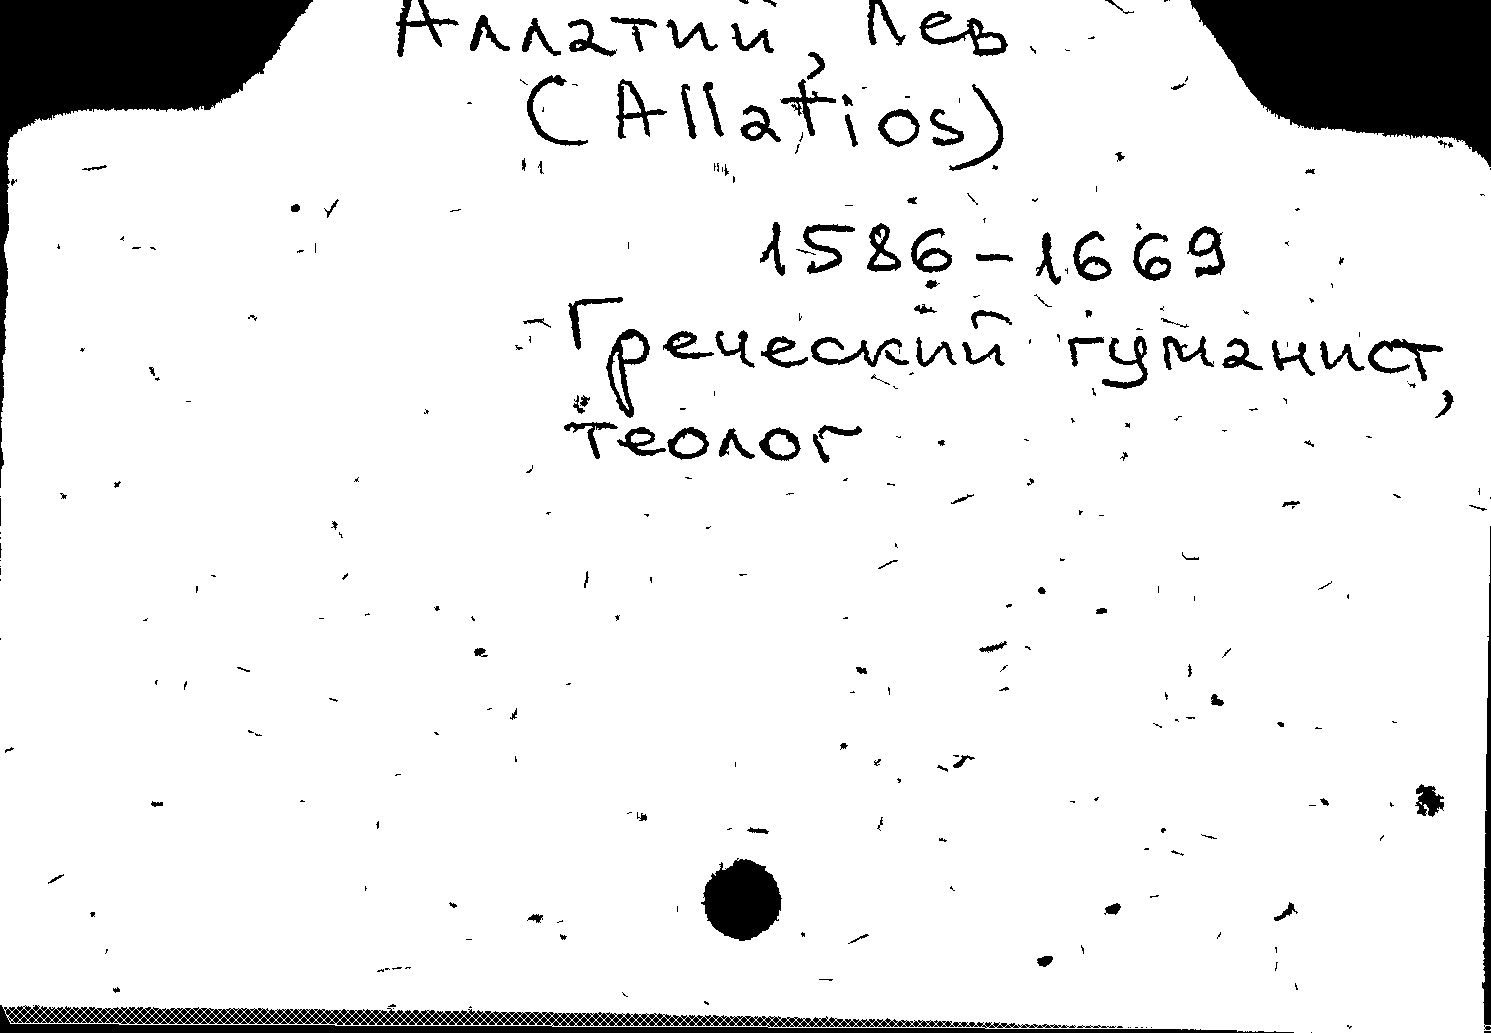 Аллатий, Лев
(Allatios)
1586-1669
Греческий гуманист,
теолог